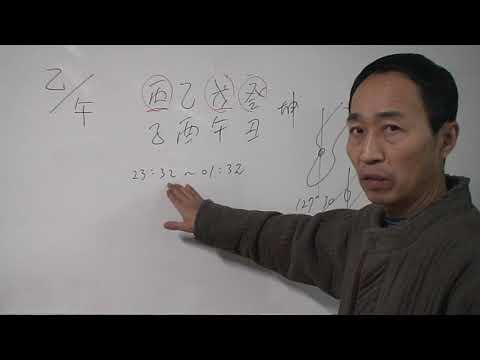 乙/午
丙乙戊癸 坤
子酉午丑
23:32 ~ 01:32
127°30